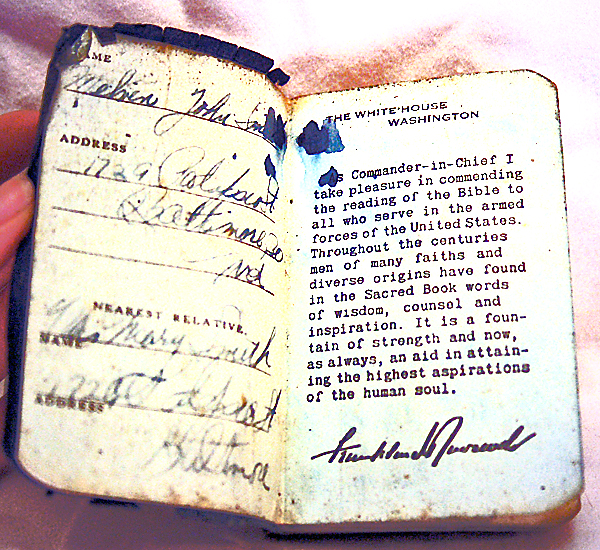 NAME
Melvin John
ADDRESS
1729
Baltimore
Md
NEAREST RELATIVE.
Mrs Mary Smith
NAME
ADDRESS
Baltimore
THE WHITE HOUSE
WASHINGTON
As Commander-in-Chief I
take pleasure in commending
the reading of the Bible to
all who serve in the armed
forces of the United States.
Throughout the centuries
men of many faiths and
diverse origins have found
in the Sacred Book words
of wisdom, counsel and
inspiration. It is a foun-
tain of strength and now,
as always, an aid in attain-
ing the highest aspirations
of the human soul.
Franklin D Roosevelt